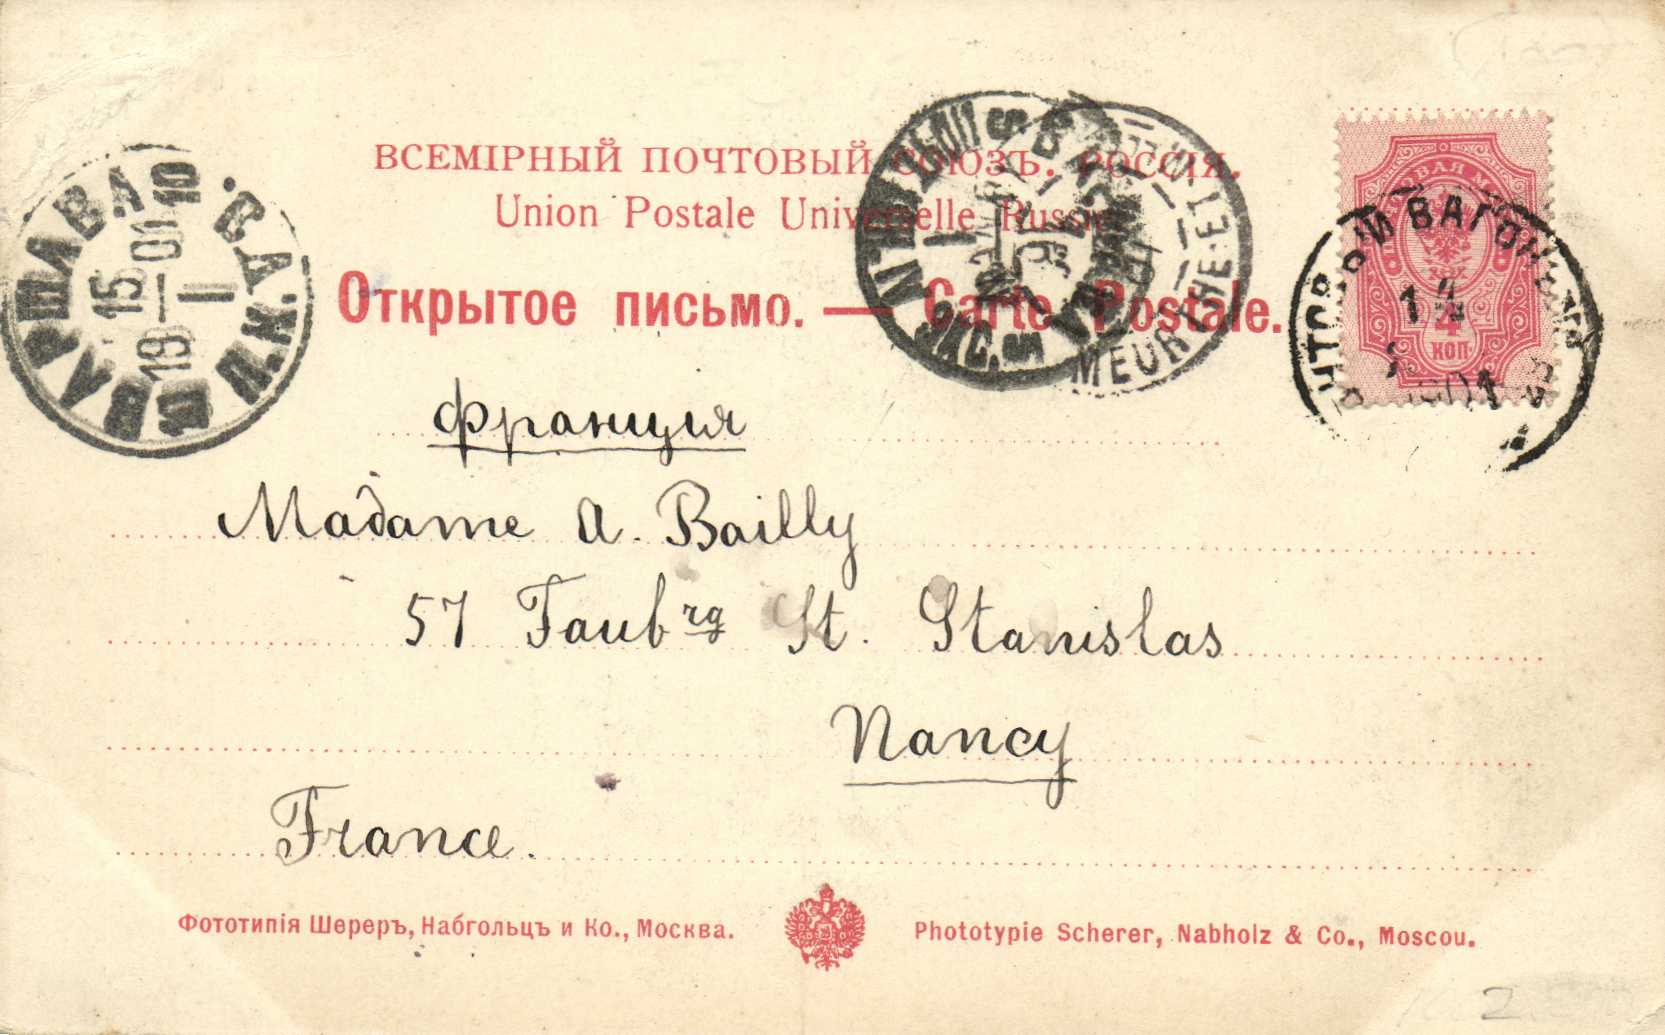 ВСЕМІРНЫЙ ПОЧТОВЫЙ СОЮЗЪ. РОССІЯ.
Union Postale Universelle Russie
Открытое письмо. — Carte Postale.
ВАРШАВА
15
1901
I
10
ВАРШ. В.Д.
MEURTHE-ET-M
ПОЧТОВЫЙ ВАГОНЪ
14
1901
4
КОП
Франция
Madame A. Bailly
57 Faubrg St. Stanislas
Nancy
France.
Фототипія Шереръ, Набгольцъ и Ко., Москва.
Phototypie Scherer, Nabholz & Co., Moscou.
2